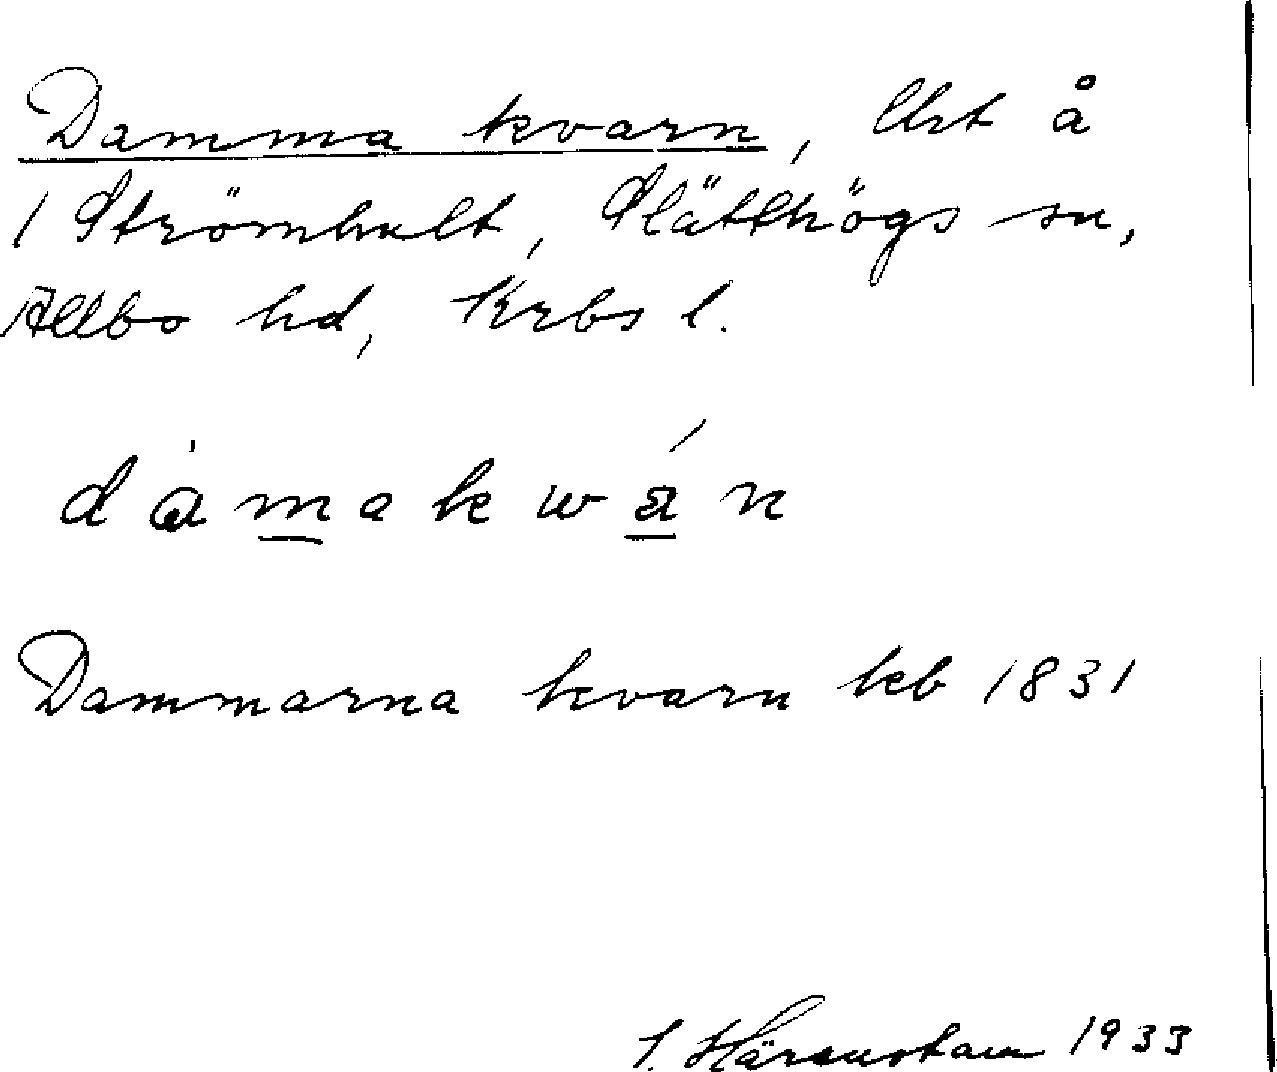 Damma kvarn, lht å
1 Strömhult, Slätthögs sn,
Allbo hd, Krbs l.
dàmakwán
Dammarna kvarn kb 1831
Härenstam 1933